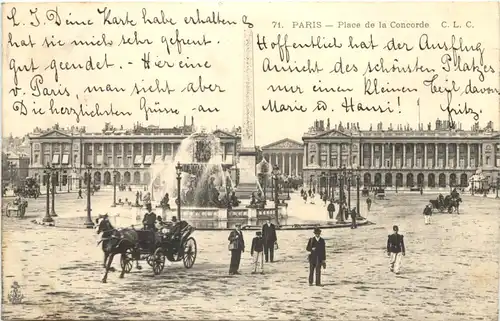 71. PARIS — Place de la Concorde C. L. C.
L. J. Deine Karte habe erhalten &
hat sie mich sehr gefreut.
gut geendet. - Hier eine
v. Paris, man sieht aber
Die herzlichsten Grüsse an
Hoffentlich hat der Ausflug
Ansicht des schönsten Platzes
nur einen kleinen Teil davon.
Marie u. Hansi! Fritz.